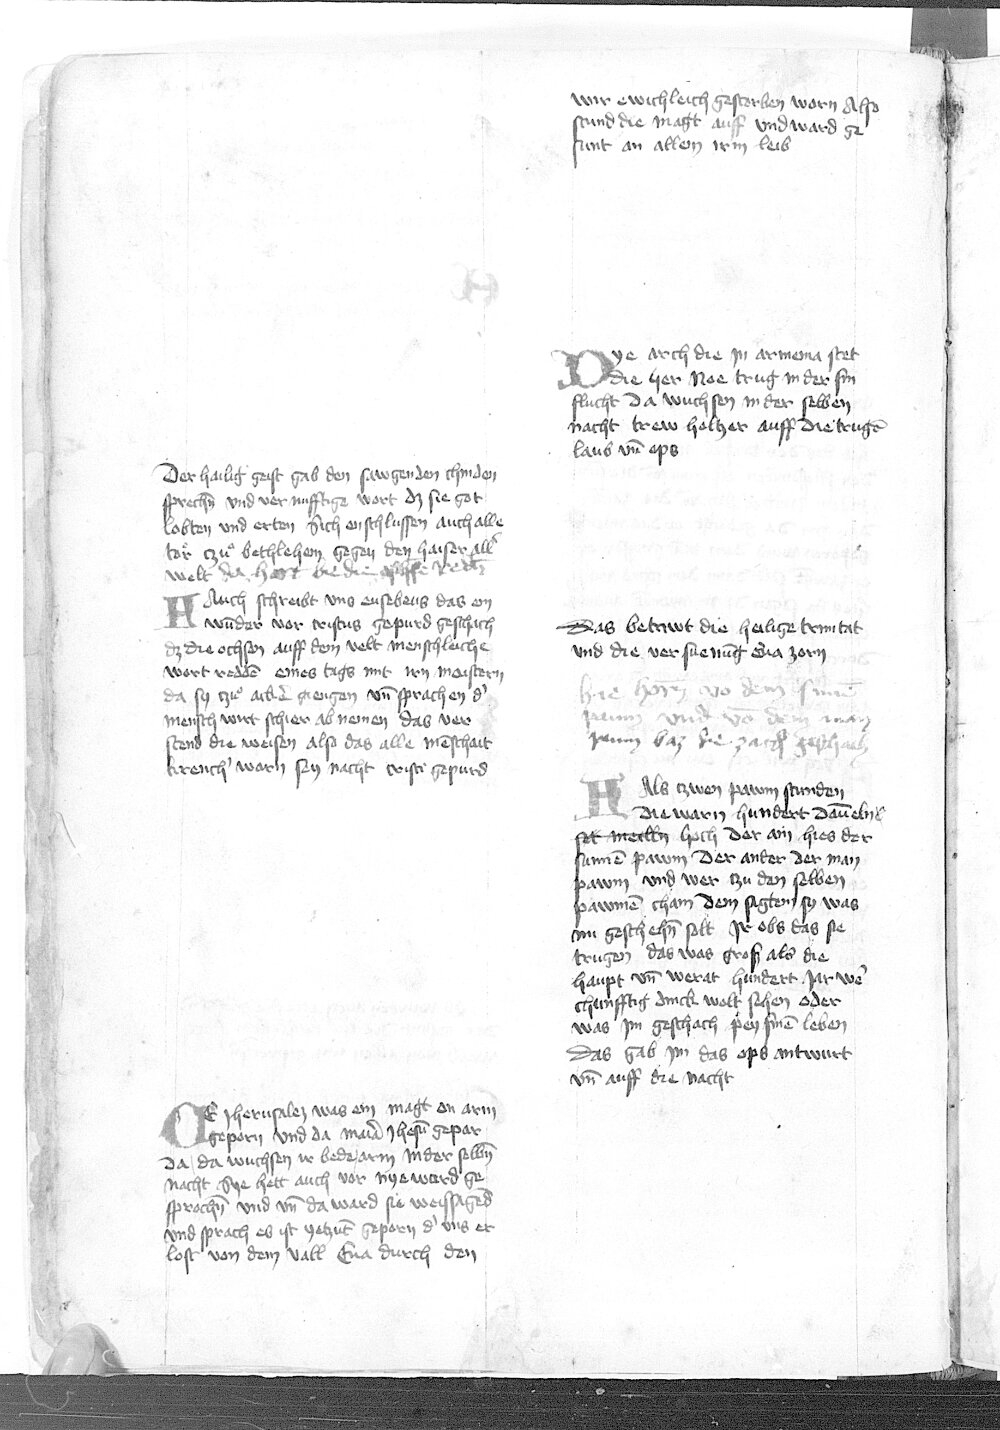 Der hailig geist gab den sawgenden chinden
sprechn̄ vnd vernufftige wort dz sie got
lobten vnd erten Sich enschlussen auch alle
tor czuͦ bethlehem gegen den kaiser all
welt da hort
Auch schreibt vns eusebeus das ein
wunder vor cristus gepurd geschach
dz die ochsen auff dem velt menschleiche
wort redden eines tags mit irn maistern
da sy czuͦ acker giengen vn̄ sprachen d'
mensch wirt schier ab nemen das ver
stend die weisen also das alle mēschait
krench' warn seyt nacht cristi gepurd
CZE Jherusalem was ein magt on arm
geporn vnd da maria Jhesū gepar
Da da wuchsen ir bede arm in der selbn̄
nacht Sye hett auch vor nye word ge
sprochn̄ vnd vn̄ da ward sie weissaged
vnd sprach es ist yetzūt geporn d' vns er
lost von dem vall Eua durch den
wir ewichleich gestorben worn Also
stund die magt auff vnd ward ge
sunt an allem irm leib
Dye arch die in armenia stet
die her Noe trug in der sin
flucht Da wuchsen in der selben
nacht trew holtzer auff die trugē
laub vn̄ ops
Das betrawt die heilige trinitat
vnd die versuenūg Eua zorn
hie horn̄ vō dem sunnē
pawm vnd vō dem man
pawm daz sie
Als czwen pawm stunden
Die warn hundert Daūeln
hoch Der ain hies der
sunnē pawm Der ander der man
pawm vnd wer czu den selben
pawmē cham dem sagten sy was
im geschehn̄ solt Ir obs das sie
trugen das was gross als die
haupt vn̄ werat hundert Jar we'
chunfftig dinck wolt sehen oder
was im geschach pey sinē leben
Das gab im das ops antwurt
vn̄ auff die nacht